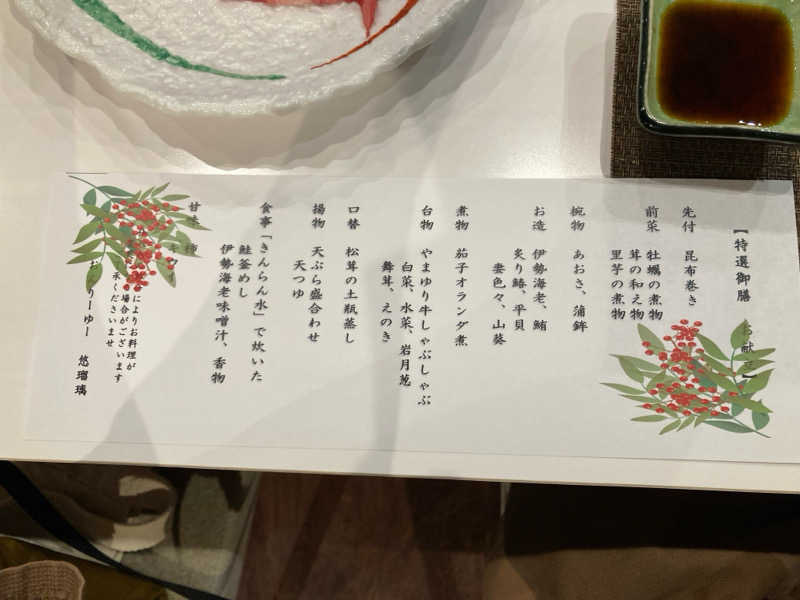 【特選御膳 お献立】
先付 昆布巻き
前菜 牡蠣の煮物
茸の和え物
里芋の煮物
椀物 あおさ、蒲鉾
お造 伊勢海老、鮪
炙り鰆、平貝
妻色々、山葵
煮物 茄子オランダ煮
台物 やまゆり牛しゃぶしゃぶ
白菜、水菜、岩月葱
舞茸、えのき
口替 松茸の土瓶蒸し
揚物 天ぷら盛合わせ
天つゆ
食事「きんらん水」で炊いた
鮭釜めし
伊勢海老味噌汁、香物
甘味 柿
キウ
によりお料理が
場合がございます
承くださいませ
おふりーゆー 悠瑠璃